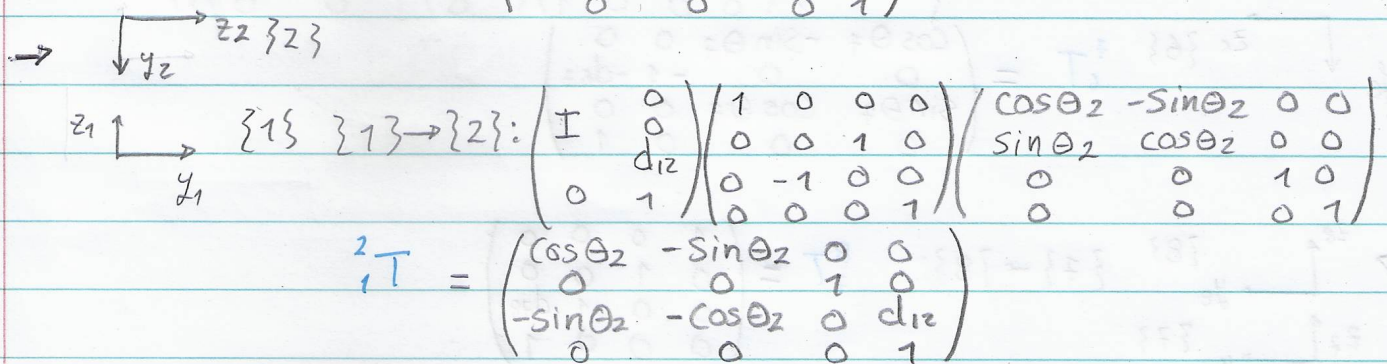 0 0 0 1
z2 {2}
→ y2
z1 {1} {1}→{2}: ( I 0 0 d12 0 1 ) ( 1 0 0 0
0 0 1 0
0 -1 0 0
0 0 0 1 ) ( cosθ2 -sinθ2 0 0
sinθ2 cosθ2 0 0
0 0 1 0
0 0 0 1 )
y1
²₁T = ( cosθ2 -sinθ2 0 0
0 0 1 0
-sinθ2 -cosθ2 0 d12
0 0 0 1 )